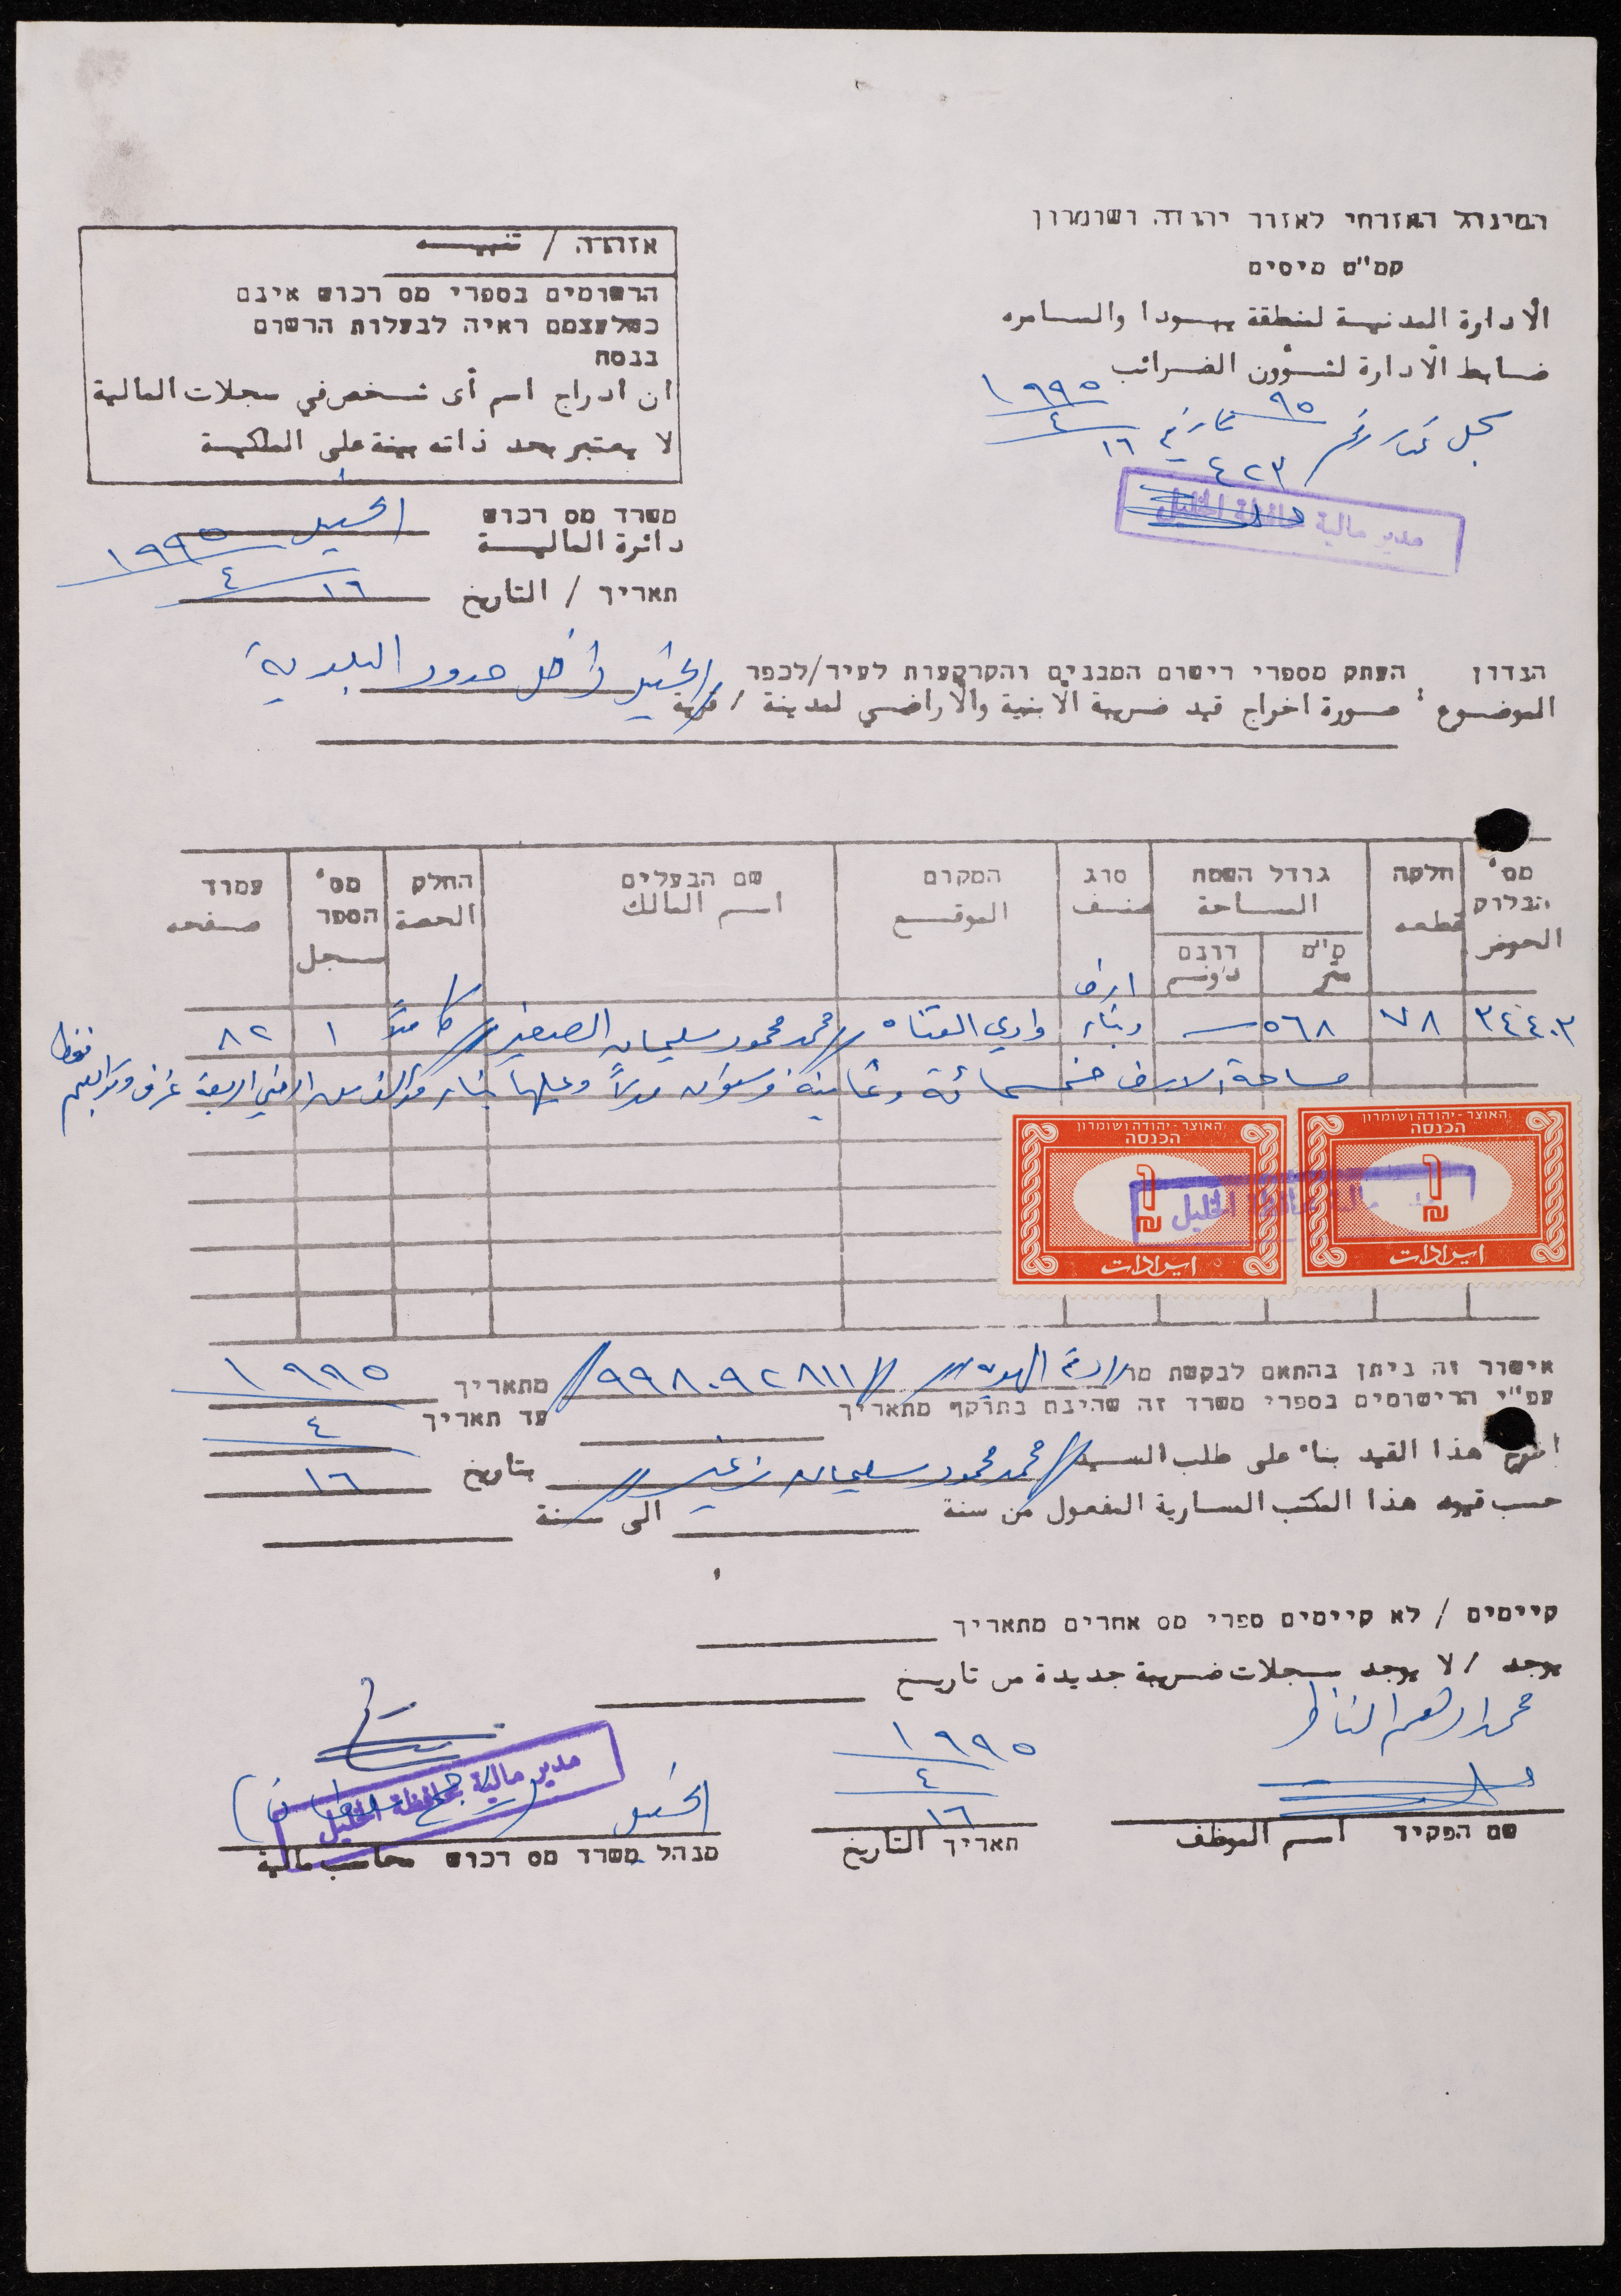 המינהל האזרחי לאזור יהודה ושומרון
קמ"ט מיסים
الأدارة المدنية لمنطقة يهودا والسامره
ضابط الأدارة لشؤون الضرائب
سجل تحت رقم ٩٥ تاريخ ١٩٩٥
٤٢٣ ٤
١٦
مدير مالية محافظة الخليل
אזהרה / تنبيه
הרשומים בספרי מס רכוש אינם
כשלעצמם ראיה לבעלות הרשום
בנסח
ان ادراج اسم أى شخص في سجلات المالية
لا يعتبر بحد ذاته بينة على الملكية
משרד מס רכוש
دائرة المالية الخليل
תאריך / التاريخ ١٩٩٥
٤
١٦
הנדון העתק מספרי רישום המבנים והקרקעות לעיר/לכפר
الموضوع : صورة اخراج قيد ضريبة الأبنية والأراضي لمدينة / قرية الخليل داخل حدود البلدية
מס' הבלוק חלקה גודל השטח סוג המקום שם הבעלים החלק מס' הספר עמוד
الحوض قطعه المساحة صنف الموقع اسم المالك الحصة سجل صفحه
מ"ם متر דונם دونم
٣٤٤٠٣ ٧٨ ٥٦٨ ارض وبناء وادي القناه // محمد محمود سليمان الصغير // كاملاً ١ ٨٢
مساحة الارض خمسمائة وثمانية وستون متراً وعليها بناء مؤلف من ارضي اربعة غرف وتوابعهم فقط
האוצר - יהודה ושומרון
הכנסה
1 ₪
ايرادات
האוצר - יהודה ושומרון
הכנסה
1 ₪
ايرادات
مالية محافظة الخليل
אישור זה ניתן בהתאם לבקשת מר // ٩٩٨٠٩٢٨١١ // מתאריך ١٩٩٥
עפ"י הרישומים בספרי משרד זה שהינם בתוקף מתאריך עד תאריך ٤
اخرج هذا القيد بناء على طلب السيد // محمد محمود سليمان زغير // بتاريخ ١٦
حسب قيود هذا المكتب السارية المفعول من سنة الى سنة
קיימים / לא קיימים ספרי מס אחרים מתאריך
يوجد / لا يوجد سجلات ضريبة جديدة من تاريخ
محمد ابراهيم الناظر
١٩٩٥
٤
١٦
الخليل
مدير مالية محافظة الخليل
שם הפקיד اسم الموظف
תאריך التاريخ
מנהל משרד מס רכוש محاسب مالية